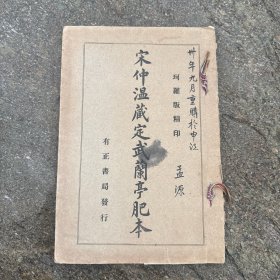 卅年九月重購於申江
孟源
珂羅版精印
宋仲温藏定武蘭亭肥本
有正書局發行